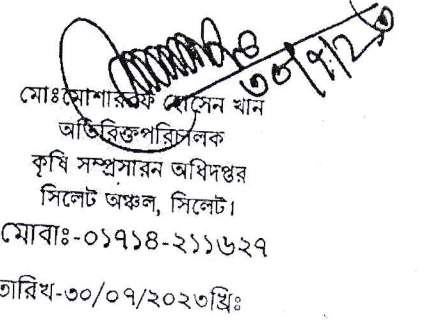 ৩০/৭/২৩
মোঃমোশাররফ হোসেন খান
অতিরিক্তপরিচালক
কৃষি সম্প্রসারন অধিদপ্তর
সিলেট অঞ্চল, সিলেট।
মোবাঃ-০১৭১৪-২১১৬২৭
তারিখ-৩০/০৭/২০২৩খ্রিঃ